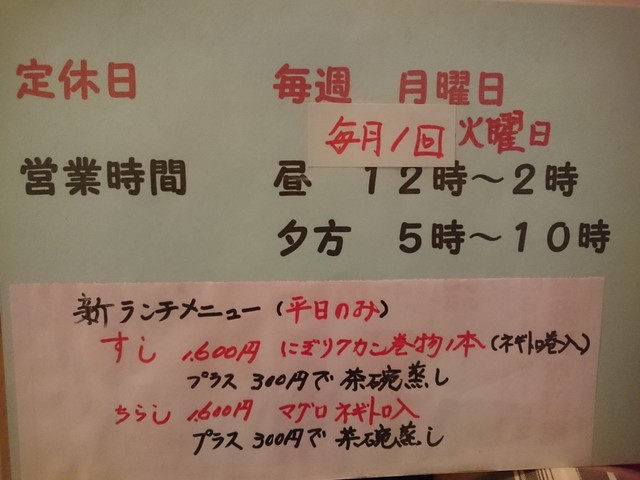 定休日 毎週 月曜日
毎月1回 火曜日
営業時間 昼 12時～2時
夕方 5時～10時
新ランチメニュー(平日のみ)
すし 1,600円 にぎり7カン巻物1本(ネギトロ巻入)
プラス 300円で茶碗蒸し
ちらし 1,600円 マグロネギトロ入
プラス 300円で茶碗蒸し